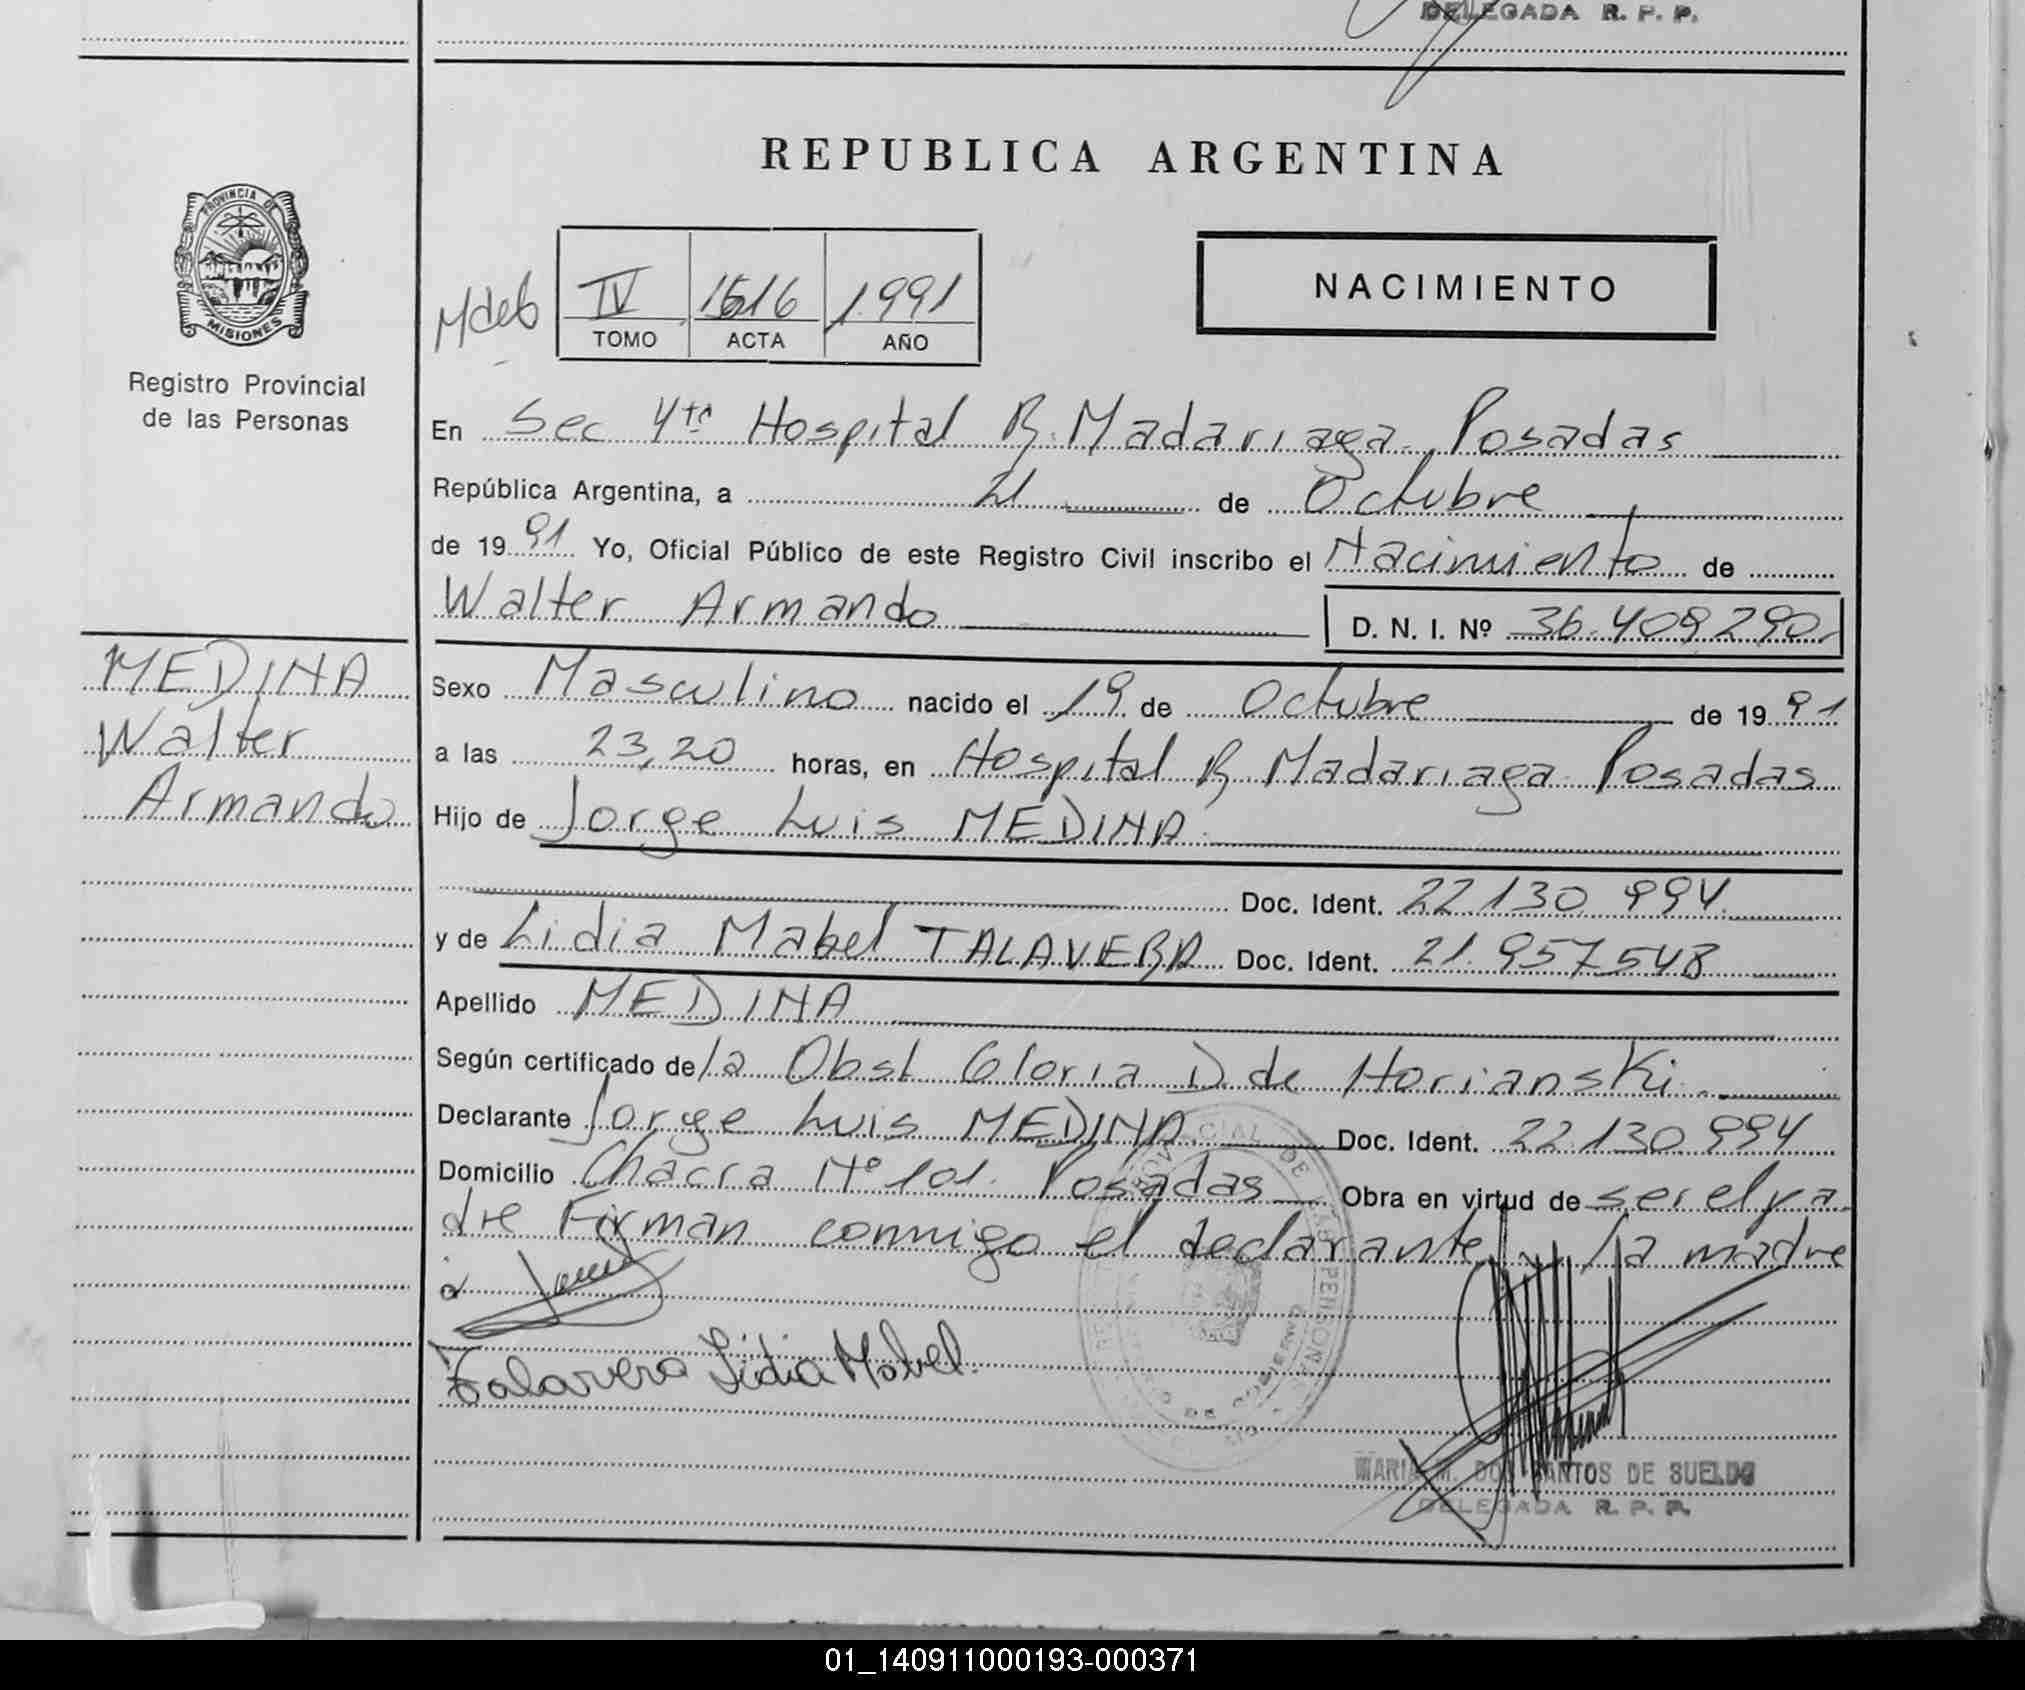 DELEGADA R. P. P.
REPUBLICA ARGENTINA
PROVINCIA DE
MISIONES
Registro Provincial
de las Personas
IV 1516 1.991
TOMO ACTA AÑO
NACIMIENTO
En Sec 4ta Hospital R. Madariaga Posadas
República Argentina, a 21 de Octubre
de 1991 Yo, Oficial Público de este Registro Civil inscribo el Nacimiento de
Walter Armando D. N. I. Nº 36.409.290
MEDINA
Walter
Armando
Sexo Masculino nacido el 19 de Octubre de 1991
a las 23,20 horas, en Hospital R. Madariaga Posadas
Hijo de Jorge Luis MEDINA
Doc. Ident. 22.130.994
y de Lidia Mabel TALAVERA Doc. Ident. 21.957.548
Apellido MEDINA
Según certificado de la Obst Gloria D. de Horianski
Declarante Jorge Luis MEDINA Doc. Ident. 22.130.994
Domicilio Chacra Nº 101. Posadas Obra en virtud de ser el pa
dre Firman conmigo el declarante y la madre
Talavera Lidia Mabel.
MARIA M. DOS SANTOS DE SUELDO
DELEGADA R. P. P.
01_140911000193-000371